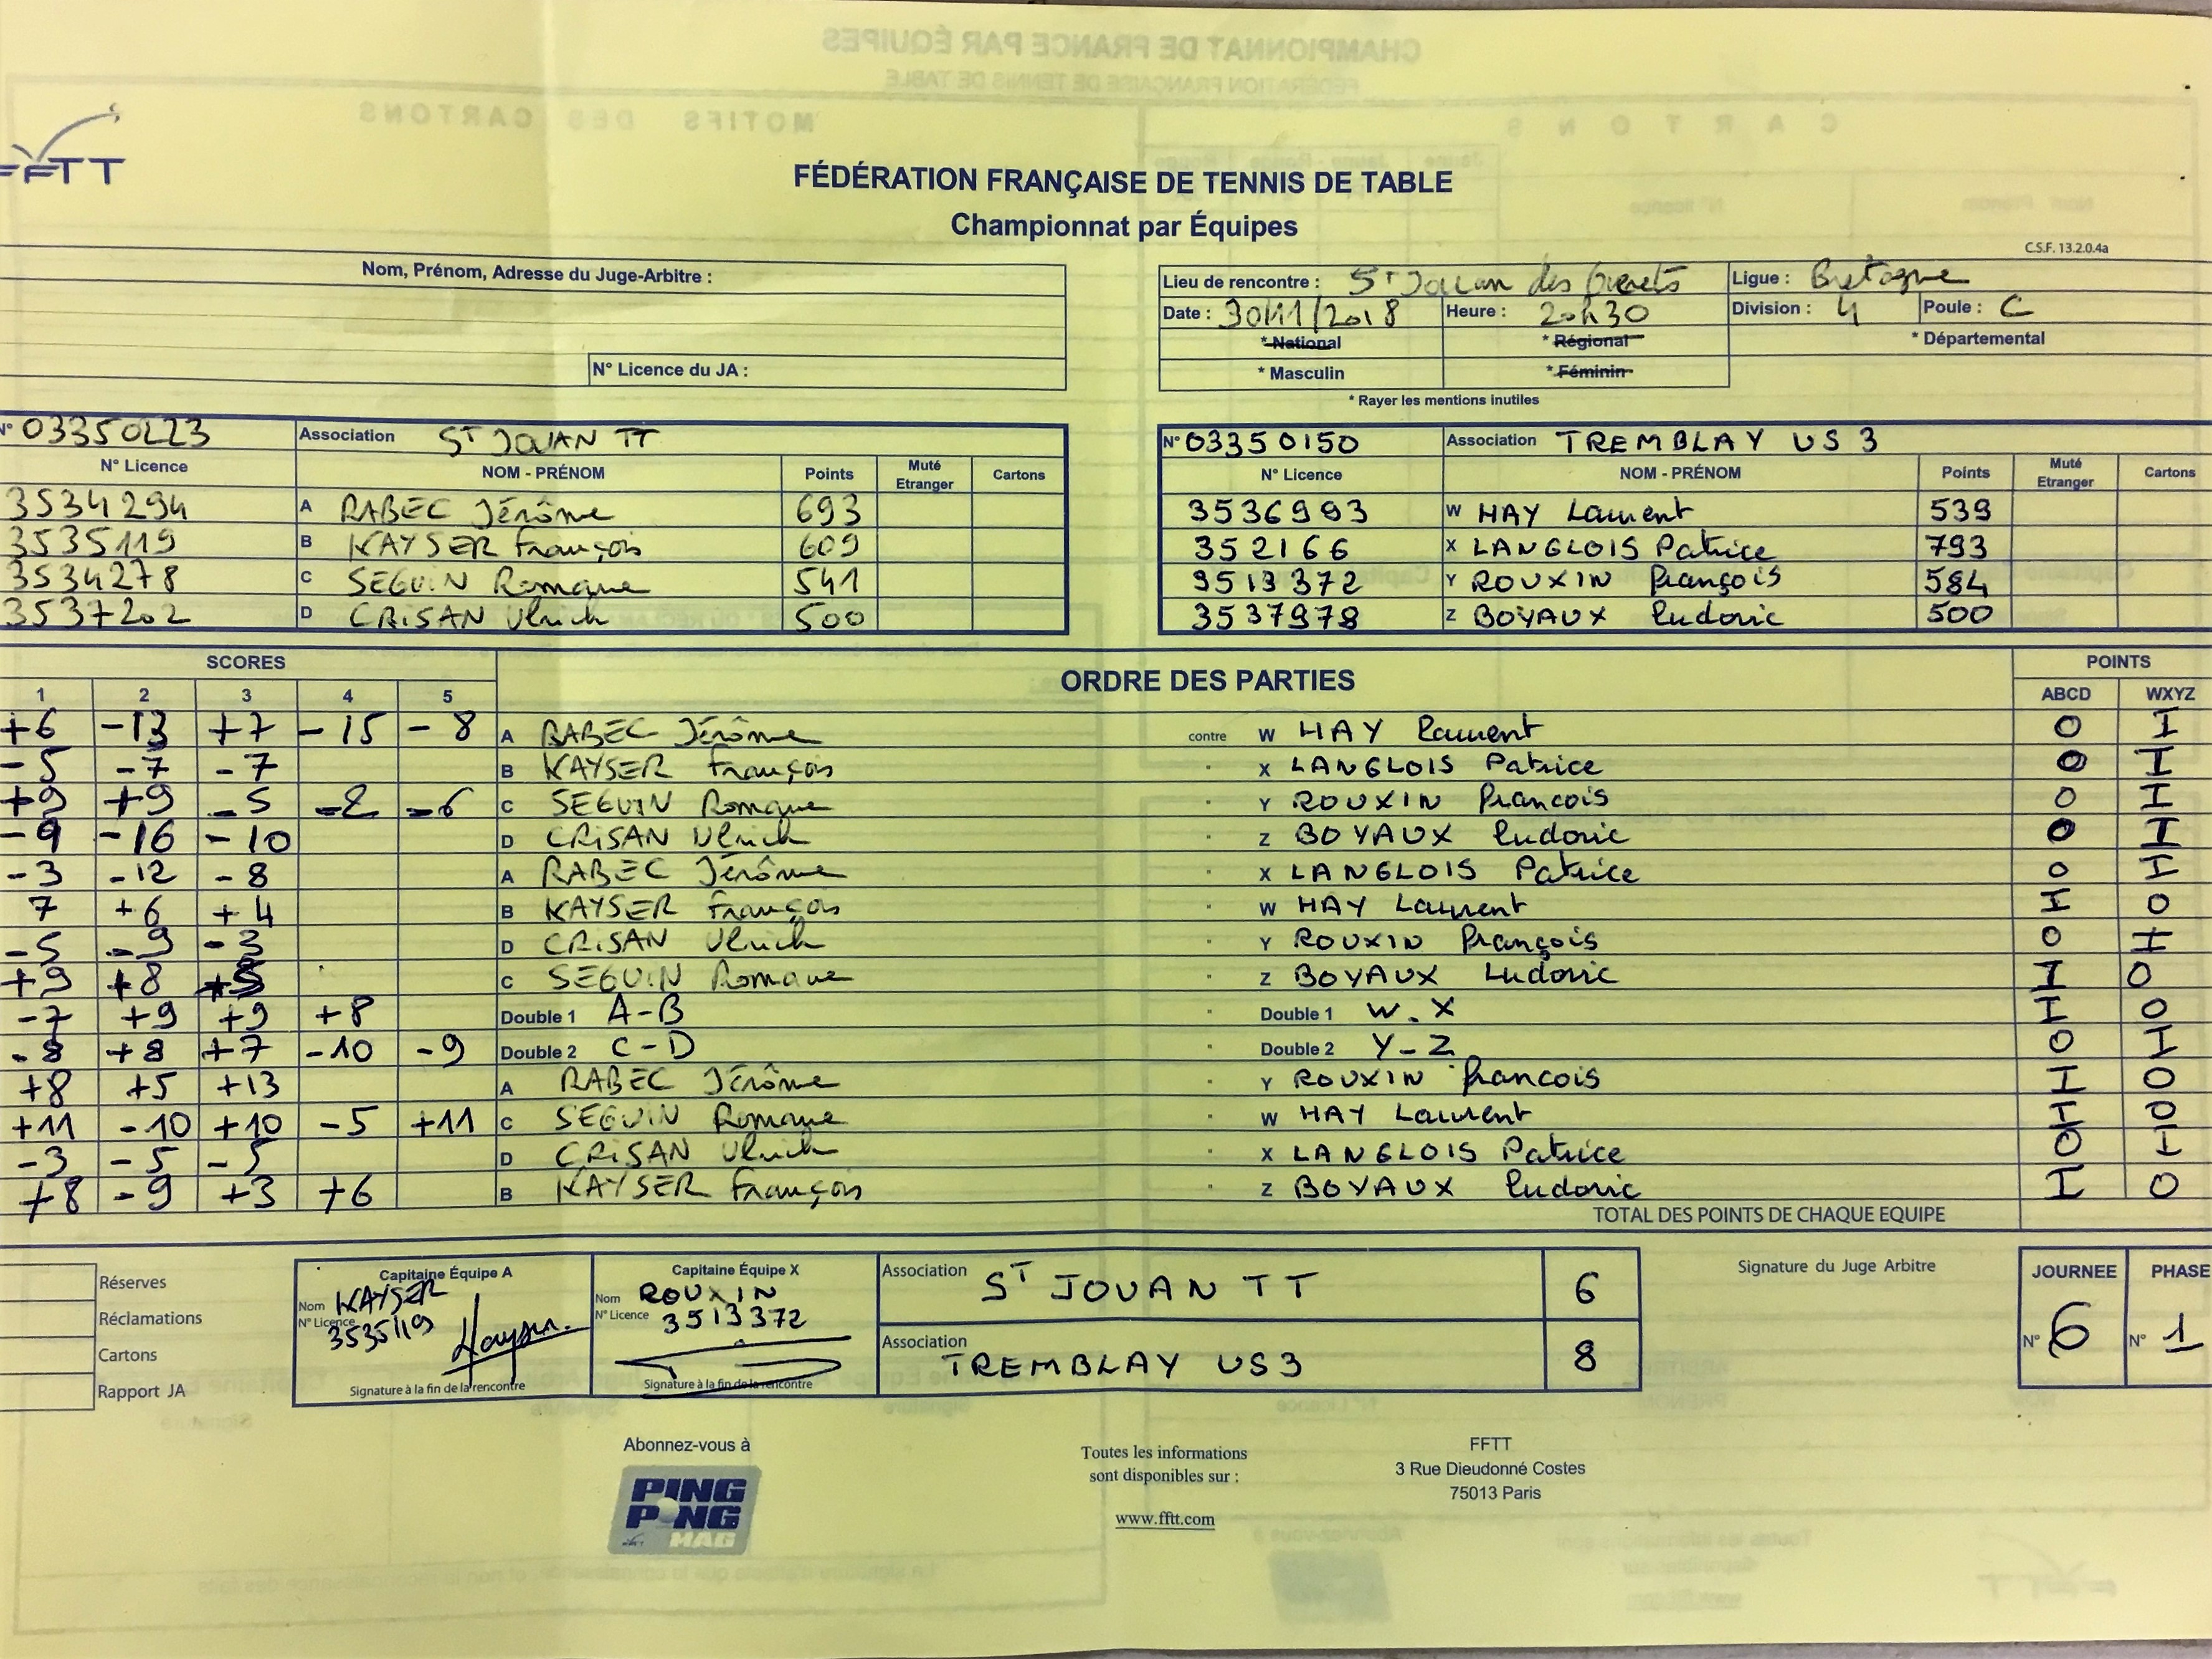 FFTT
FÉDÉRATION FRANÇAISE DE TENNIS DE TABLE
Championnat par Équipes
C.S.F. 13.2.0.4a
Nom, Prénom, Adresse du Juge-Arbitre :
N° Licence du JA :
Lieu de rencontre : St Jouan des Guerets Ligue : Bretagne
Date : 30/11/2018 Heure : 20h30 Division : 4 Poule : C
* National * Régional * Départemental
* Masculin * Féminin
* Rayer les mentions inutiles
N° 03350223 Association ST JOUAN TT
N° Licence NOM - PRÉNOM Points Muté Etranger Cartons
3534294 A RABEC Jérôme 693
3535119 B KAYSER François 609
3534278 C SEGUIN Romane 541
3537202 D CRISAN Ulrich 500
N° 03350150 Association TREMBLAY US 3
N° Licence NOM - PRÉNOM Points Muté Etranger Cartons
3536993 W HAY Laurent 539
352166 X LANGLOIS Patrice 793
3513372 Y ROUXIN François 584
3537978 Z BOYAUX Ludovic 500
SCORES ORDRE DES PARTIES POINTS
1 2 3 4 5 ABCD WXYZ
+6 -13 +7 -15 -8 A RABEC Jérôme contre W HAY Laurent 0 I
-5 -7 -7 B KAYSER François X LANGLOIS Patrice 0 I
+9 +9 -5 -2 -6 C SEGUIN Romane Y ROUXIN Francois 0 I
-9 -16 -10 D CRISAN Ulrich Z BOYAUX Ludovic 0 I
-3 -12 -8 A RABEC Jérôme X LANGLOIS Patrice 0 I
7 +6 +4 B KAYSER François W HAY Laurent I 0
-5 -9 -3 D CRISAN Ulrich Y ROUXIN François 0 I
+9 +8 C SEGUIN Romane Z BOYAUX Ludovic I 0
-7 +9 +9 +8 Double 1 A-B Double 1 W.X I 0
-8 +8 +7 -10 -9 Double 2 C-D Double 2 Y-Z 0 I
+8 +5 +13 A RABEC Jérôme Y ROUXIN Francois I 0
+11 -10 +10 -5 +11 C SEGUIN Romane W HAY Laurent I 0
-3 -5 -5 D CRISAN Ulrich X LANGLOIS Patrice 0 I
+8 -9 +3 +6 B KAYSER François Z BOYAUX Ludovic I 0
TOTAL DES POINTS DE CHAQUE EQUIPE
Réserves
Réclamations
Cartons
Rapport JA
Capitaine Équipe A
Nom KAYSER
N° Licence 3535119
Kayser
Signature à la fin de la rencontre
Capitaine Équipe X
Nom ROUXIN
N° Licence 3513372
Signature à la fin de la rencontre
Association ST JOUAN TT 6
Association TREMBLAY US3 8
Signature du Juge Arbitre
JOURNEE PHASE
N° 6 N° 1
Abonnez-vous à
PING PONG MAG
Toutes les informations
sont disponibles sur :
www.fftt.com
FFTT
3 Rue Dieudonné Costes
75013 Paris